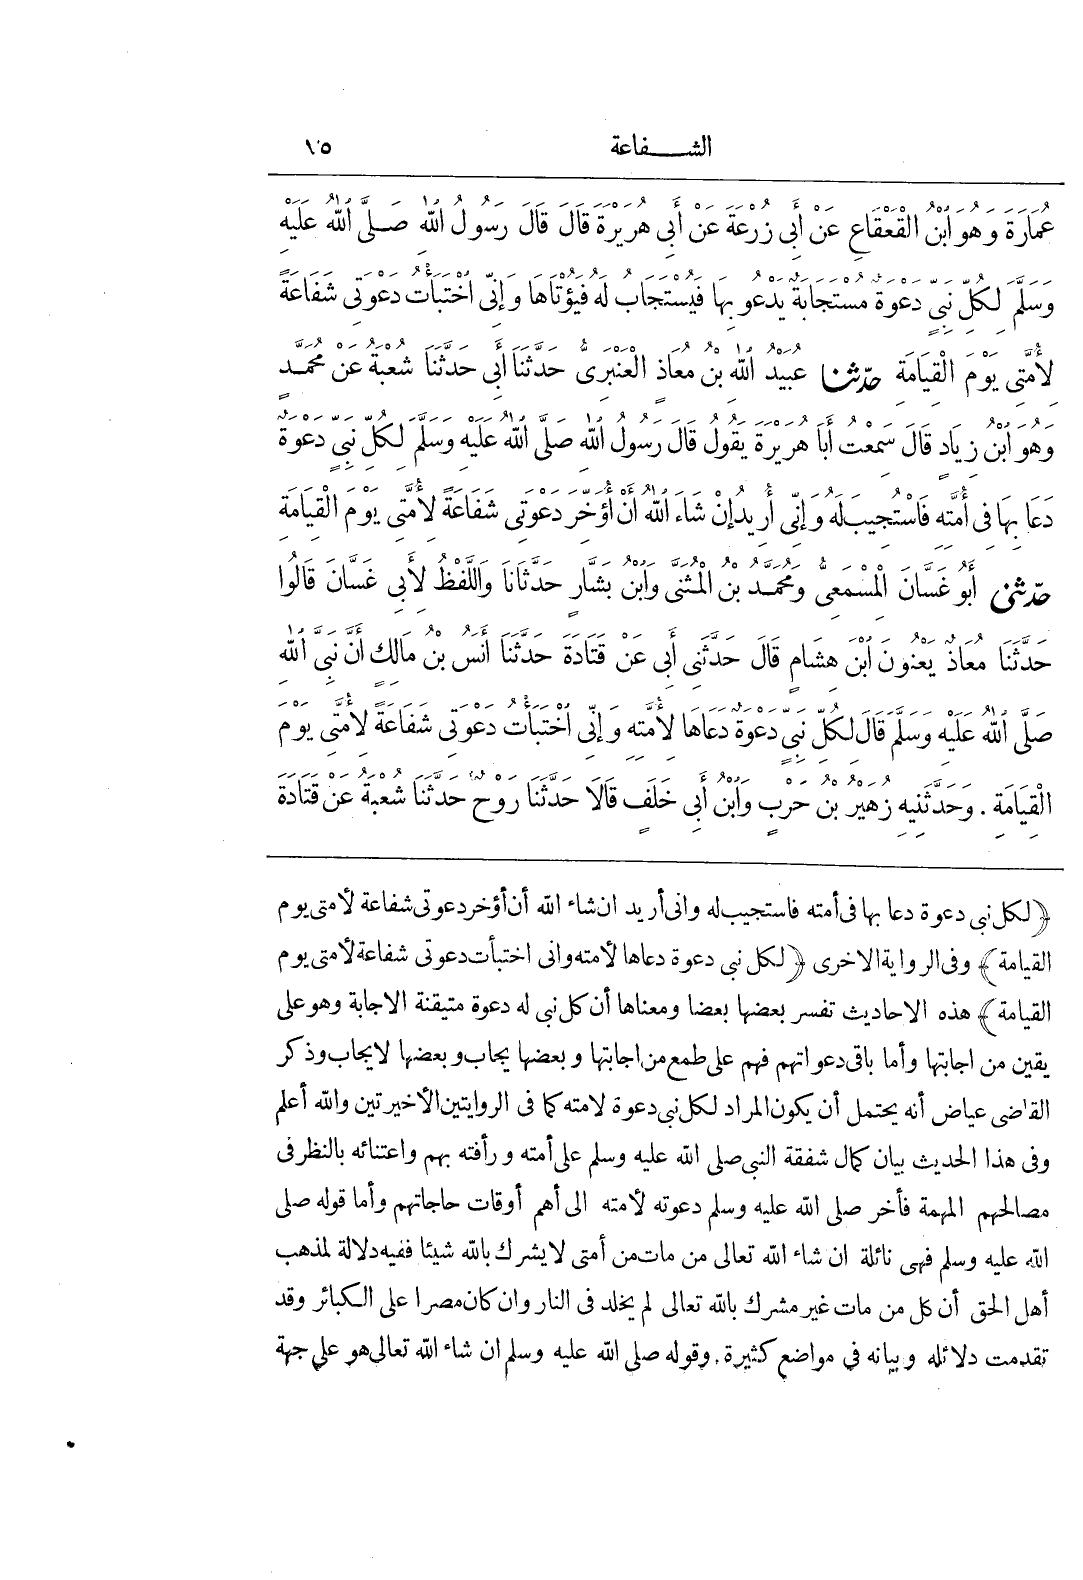 الشفاعة ٧٥
عُمَارَةَ وَهُوَ ابْنُ الْقَعْقَاعِ عَنْ أَبِي زُرْعَةَ عَنْ أَبِي هُرَيْرَةَ قَالَ قَالَ رَسُولُ اللهِ صَلَّى اللهُ عَلَيْهِ
وَسَلَّمَ لِكُلِّ نَبِيٍّ دَعْوَةٌ مُسْتَجَابَةٌ يَدْعُو بِهَا فَيُسْتَجَابُ لَهُ فَيُؤْتَاهَا وَإِنِّي اخْتَبَأْتُ دَعْوَتِي شَفَاعَةً
لِأُمَّتِي يَوْمَ الْقِيَامَةِ حدّثنا عُبَيْدُ اللهِ بْنُ مُعَاذٍ الْعَنْبَرِيُّ حَدَّثَنَا أَبِي حَدَّثَنَا شُعْبَةُ عَنْ مُحَمَّدٍ
وَهُوَ ابْنُ زِيَادٍ قَالَ سَمِعْتُ أَبَا هُرَيْرَةَ يَقُولُ قَالَ رَسُولُ اللهِ صَلَّى اللهُ عَلَيْهِ وَسَلَّمَ لِكُلِّ نَبِيٍّ دَعْوَةٌ
دَعَا بِهَا فِي أُمَّتِهِ فَاسْتُجِيبَ لَهُ وَإِنِّي أُرِيدُ إِنْ شَاءَ اللهُ أَنْ أُؤَخِّرَ دَعْوَتِي شَفَاعَةً لِأُمَّتِي يَوْمَ الْقِيَامَةِ
حدّثني أَبُو غَسَّانَ الْمِسْمَعِيُّ وَمُحَمَّدُ بْنُ الْمُثَنَّى وَابْنُ بَشَّارٍ حَدَّثَانَا وَاللَّفْظُ لِأَبِي غَسَّانَ قَالُوا
حَدَّثَنَا مُعَاذٌ يَعْنُونَ ابْنَ هِشَامٍ قَالَ حَدَّثَنِي أَبِي عَنْ قَتَادَةَ حَدَّثَنَا أَنَسُ بْنُ مَالِكٍ أَنَّ نَبِيَّ اللهِ
صَلَّى اللهُ عَلَيْهِ وَسَلَّمَ قَالَ لِكُلِّ نَبِيٍّ دَعْوَةٌ دَعَاهَا لِأُمَّتِهِ وَإِنِّي اخْتَبَأْتُ دَعْوَتِي شَفَاعَةً لِأُمَّتِي يَوْمَ
الْقِيَامَةِ . وَحَدَّثَنِيهِ زُهَيْرُ بْنُ حَرْبٍ وَابْنُ أَبِي خَلَفٍ قَالَا حَدَّثَنَا رَوْحٌ حَدَّثَنَا شُعْبَةُ عَنْ قَتَادَةَ
﴿لكل نبي دعوة دعا بها في أمته فاستجيب له واني أريد ان شاء الله أن أؤخر دعوتي شفاعة لأمتي يوم
القيامة﴾ وفي الرواية الاخرى ﴿لكل نبي دعوة دعاها لأمته واني اختبأت دعوتي شفاعة لأمتي يوم
القيامة﴾ هذه الاحاديث تفسر بعضها بعضا ومعناها أن كل نبي له دعوة متيقنة الاجابة وهو على
يقين من اجابتها وأما باقي دعواتهم فهم على طمع من اجابتها وبعضها يجاب وبعضها لايجاب وذكر
القاضي عياض أنه يحتمل أن يكون المراد لكل نبي دعوة لامته كما في الروايتين الأخيرتين والله أعلم
وفي هذا الحديث بيان كمال شفقة النبي صلى الله عليه وسلم على أمته ورأفته بهم واعتنائه بالنظر في
مصالحهم المهمة فأخر صلى الله عليه وسلم دعوته لأمته الى أهم أوقات حاجاتهم وأما قوله صلى
الله عليه وسلم فهي نائلة ان شاء الله تعالى من مات من أمتي لايشرك بالله شيئا ففيه دلالة لمذهب
أهل الحق أن كل من مات غير مشرك بالله تعالى لم يخلد في النار وان كان مصرا على الكبائر وقد
تقدمت دلائله وبيانه في مواضع كثيرة. وقوله صلى الله عليه وسلم ان شاء الله تعالى هو على جهة